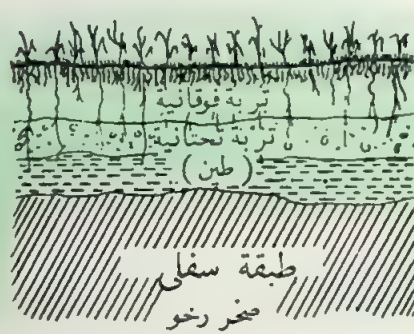 تربة فوقانية
تربة تحتانية
(طين)
طبقة سفلى
صخر رخو